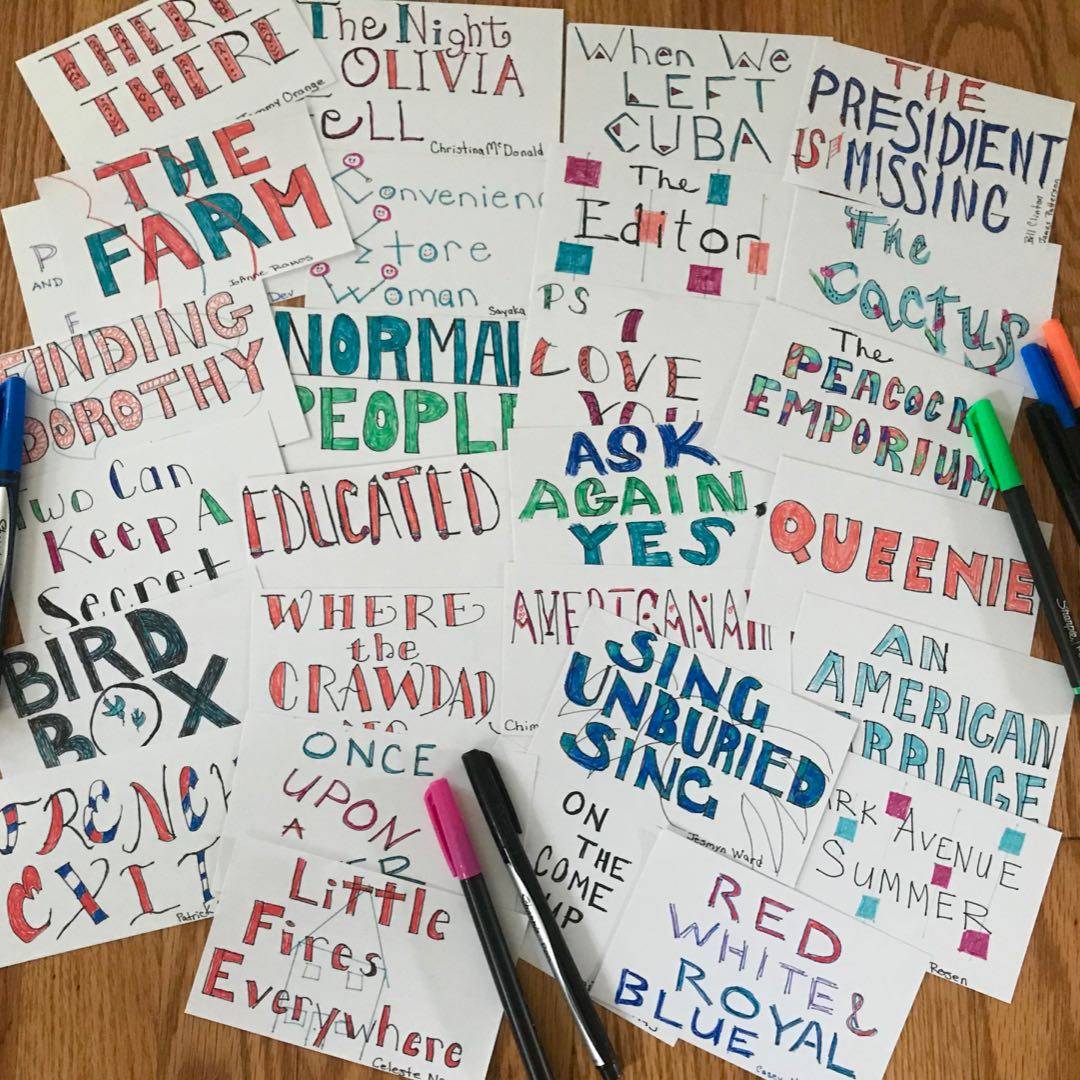 THERE
THERE
Tommy Orange
The Night
OLIVIA
ELL
Christina McDonald
When We
LEFT
CUBA
THE
PRESIDIENT
IS MISSING
Bill Clinton
James Patterson
THE
FARM
JoAnne Ramos
P
AND
F
Dev
Convenienc
Store
Woman
Sayaka
The
Editor
The
Cactus
FINDING
DOROTHY
NORMAL
PEOPL
PS
I
LOVE
YOU
The
PEACOCK
EMPORIUM
Two Can
Keep A
Secret
EDUCATED
ASK
AGAIN,
YES
QUEENIE
BIRD
BOX
WHERE
the
CRAWDAD
AMERICANAH
Chim
SING
UNBURIED
SING
Jesmyn Ward
AN
AMERICAN
ARRIAGE
FRENCH
EXIT
Patrick
ONCE
UPON
A
ER
Little
Fires
Everywhere
Celeste
ON
THE
COME
UP
RK AVENUE
SUMMER
Rosen
RED
WHITE &
ROYAL
BLUE
Casey
Sharpie